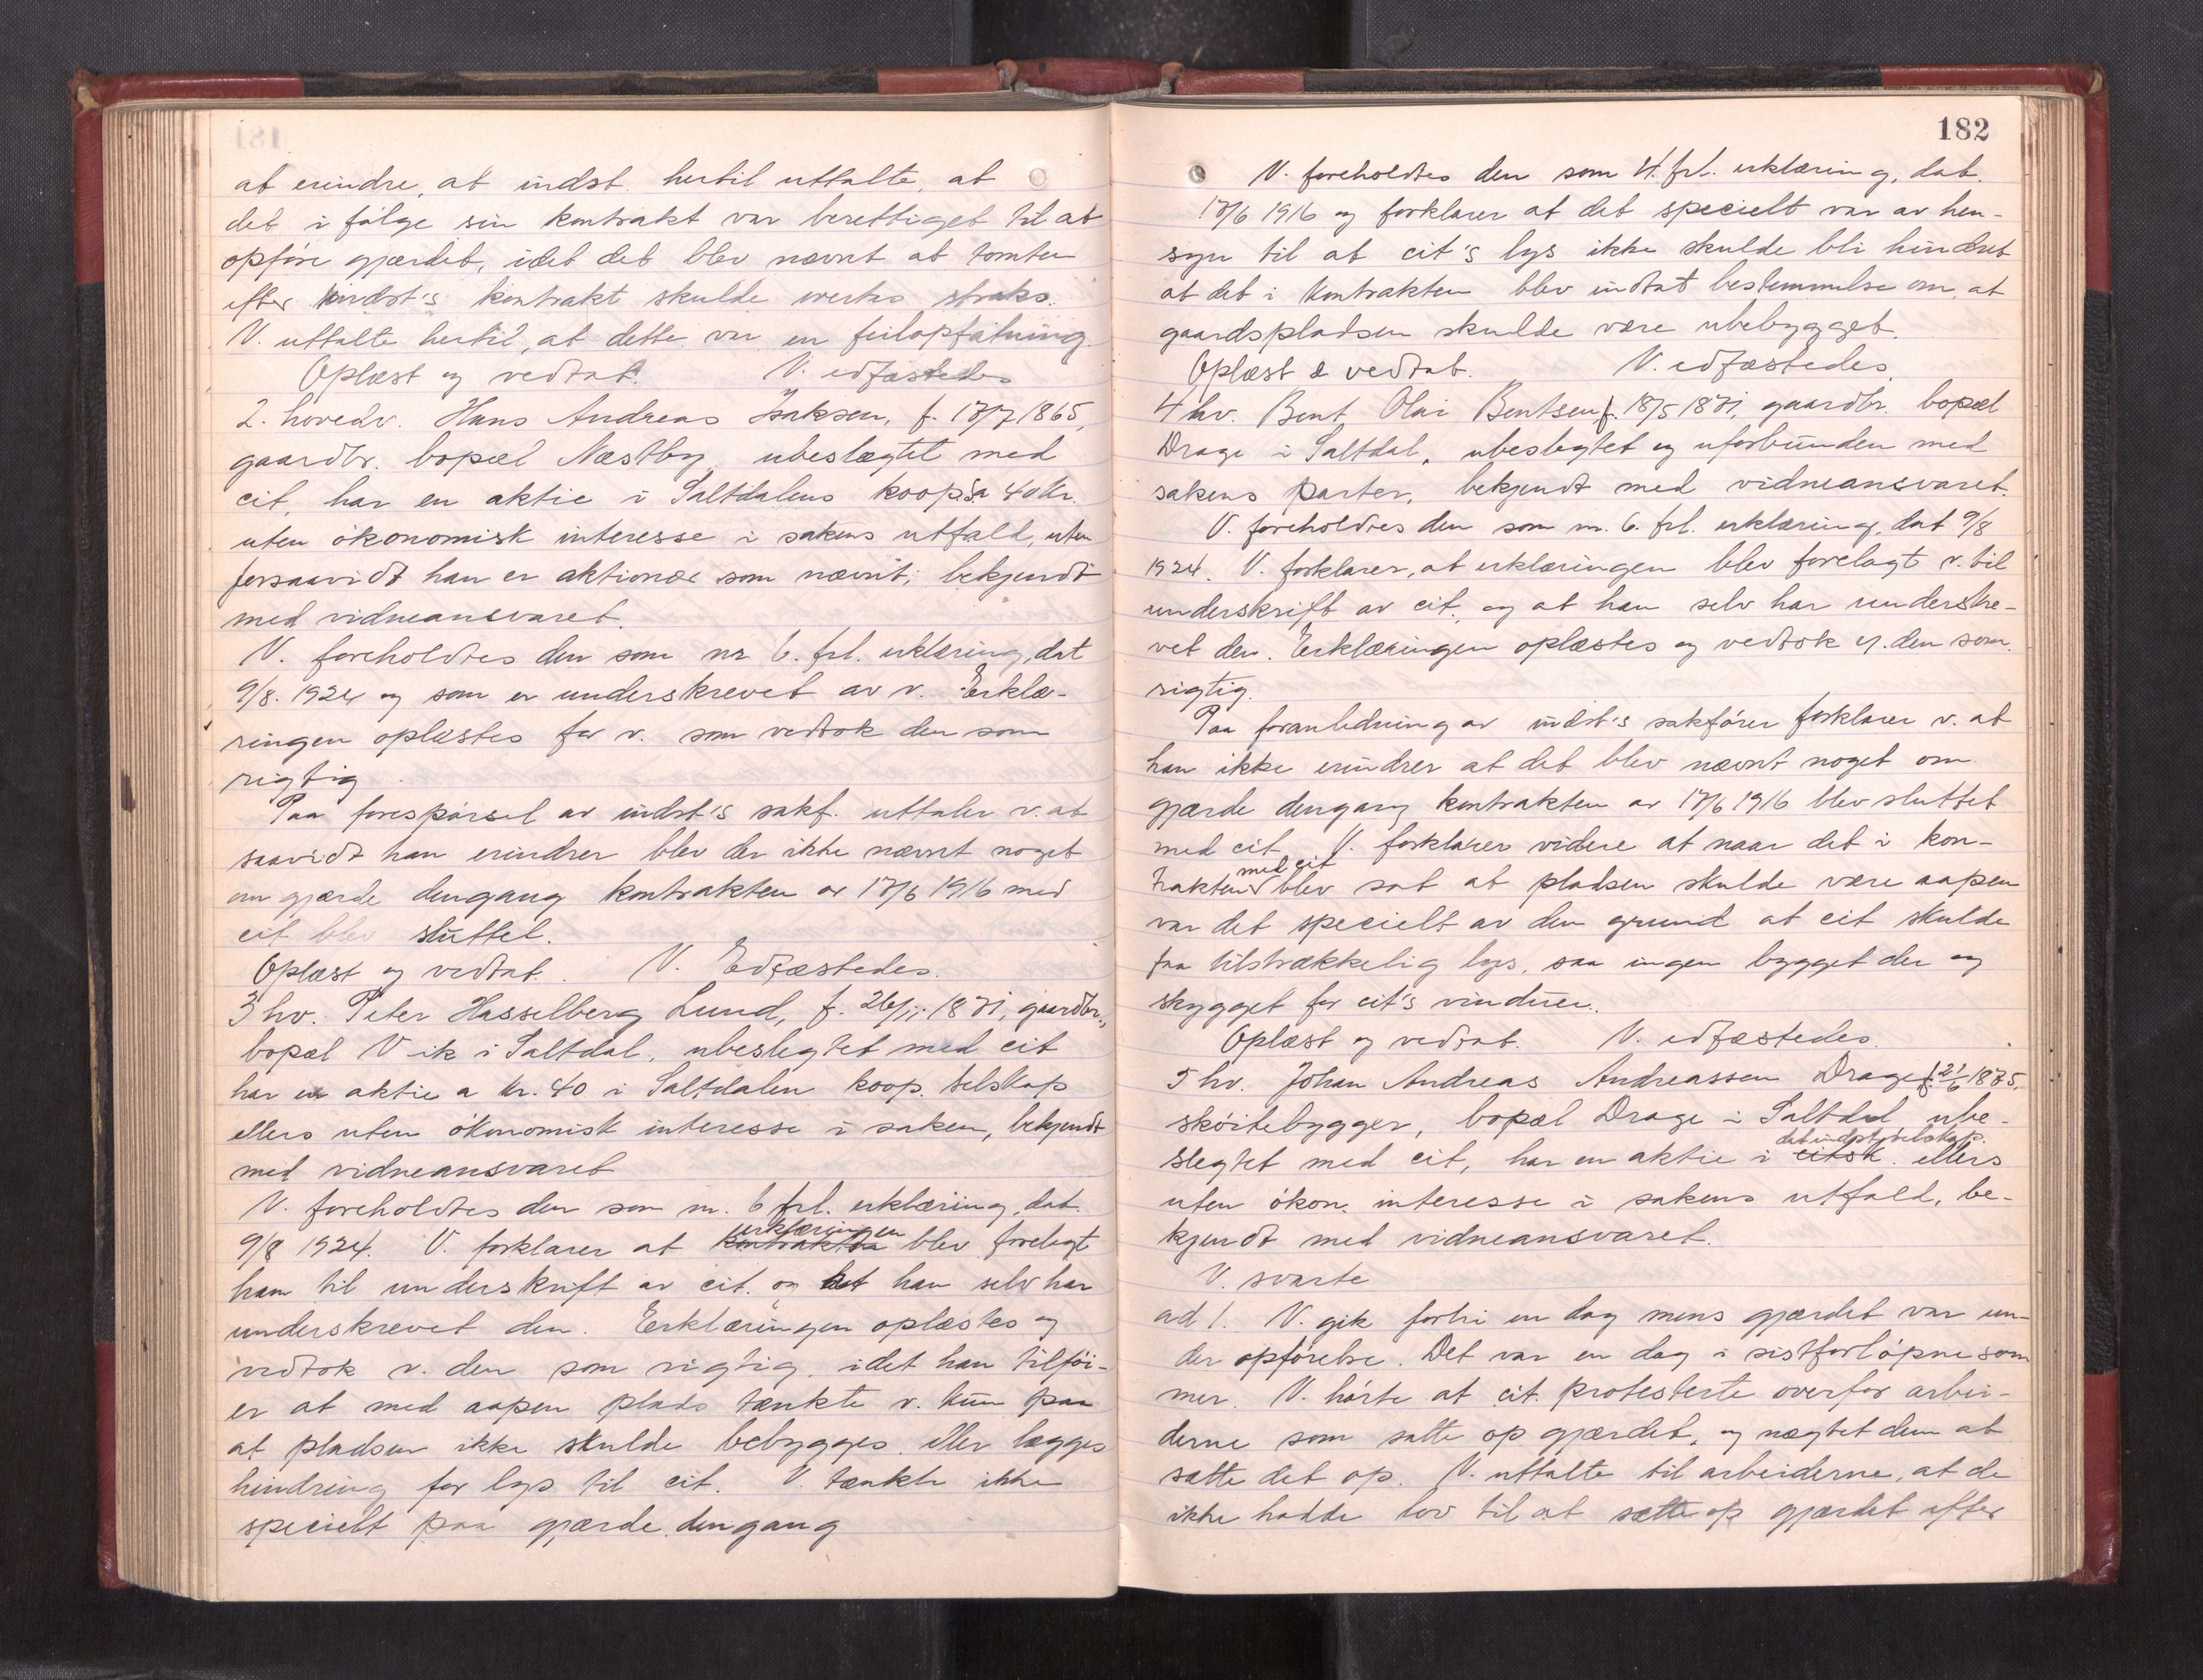 at erindre, at indst. hertil uttalte, at
det i følge sin kontrakt var berettiget til at
opføre gjærdet, idet det blev nævnt at tomten
efter indst's kontrakt skulde straks.
V. uttalte hertil, at dette var en feilopfatning.
Oplæst og vedtat. V. edfæstedes
2. hovedv. Hans Andreas Isaksen, f. 17/7 1865,
gaardbr. bopæl Næstby, ubeslægtet med
cit, har en aktie i Saltdalens koop a 40 kr.
uten økonomisk interesse i sakens utfald, uten
forsaavidt han er aktionær som nævnt; bekjendt
med vidneansvaret.
V. foreholdtes den som nr 6. frl. erklæring, dat
9/8. 1924 og som er underskrevet av v. Erklæ-
ringen oplæstes for v. som vedtok den som
rigtig.
Paa forespørsel av indst's sakf. uttaler v. at
saavidt han erindrer blev der ikke nævnt noget
om gjærde dengang kontrakten av 17/6 1916 med
cit blev sluttet.
Oplæst og vedtat. V. Edfæstedes.
3 hv. Peter Hasselberg Lund, f. 26/11 1871, gaardbr.,
bopæl Vik i Saltdal, ubeslegtet med cit
har en aktie a kr. 40 i Saltdalen koop. selskap
ellers uten økonomisk interesse i saken, bekjendt
med vidneansvaret
V. foreholdtes den som nr. 6 frl. erklæring, dat.
9/8 1924. V. forklarer at kontrakten erklæringen blev forelagt
ham til underskrift av cit. og at han selv har
underskrevet den. Erklæringen oplæstes og
vedtok v. den som rigtig, idet han tilføi-
er at med aapen plads tænkte v. kun paa
at pladsen ikke skulde bebygges eller lægges
hindring for lys til cit. V. tænkte ikke
specielt paa gjærde dengang
182
V. foreholdtes den som 4. frl. erklæring, dat.
17/6 1916 og forklarer at det specielt var av hen-
syn til at cit's lys ikke skulde bli hindret
at det i kontrakten blev indtat bestemmelse om, at
gaardspladsen skulde være ubebygget.
Oplæst & vedtat. V. edfæstedes.
4 hv. Bent Olai Bentsen f. 18/5 1871, gaardbr. bopæl
Drage i Saltdal, ubeslegtet og uforbunden med
sakens parter, bekjendt med vidneansvaret.
V. foreholdtes den som nr. 6. frl. erklæring, dat 9/8
1924. V. forklarer, at erklæringen blev forelagt v. til
underskrift av cit. og at han selv har underskre-
vet den. Erklæringen oplæstes og vedtok v. den som
rigtig.
Paa foranledning av indst's sakfører forklarer v. at
han ikke erindrer at det blev nævnt noget om
gjærde dengang kontrakten av 17/6 1916 blev sluttet
med cit. V. forklarer videre at naar det i kon-
trakten med cit blev sat at pladsen skulde være aapen
var det specielt av den grund at cit skulde
faa tilstrækkelig lys, saa ingen bygget der og
skygget for cit's vinduer.
Oplæst og vedtat. V. edfæstedes.
5 hv. Johan Andreas Andreassen Drage f. 21/6 1875,
skøitebygger, bopæl Drage i Saltdal ube-
slegtet med cit, har en aktie i citsk. det indst. selskap. ellers
uten økon. interesse i sakens utfald, be-
kjendt med vidneansvaret.
V. svarte
ad 1. V. gik forbi en dag mens gjærdet var un-
der opførelse. Det var en dag i sistforløpne som
mer. V. hørte at cit. protesterte overfor arbei-
derne som satte op gjærdet, og nægtet dem at
sætte det op. V. uttalte til arbeiderne, at de
ikke hadde lov til at sætte op gjærdet efter